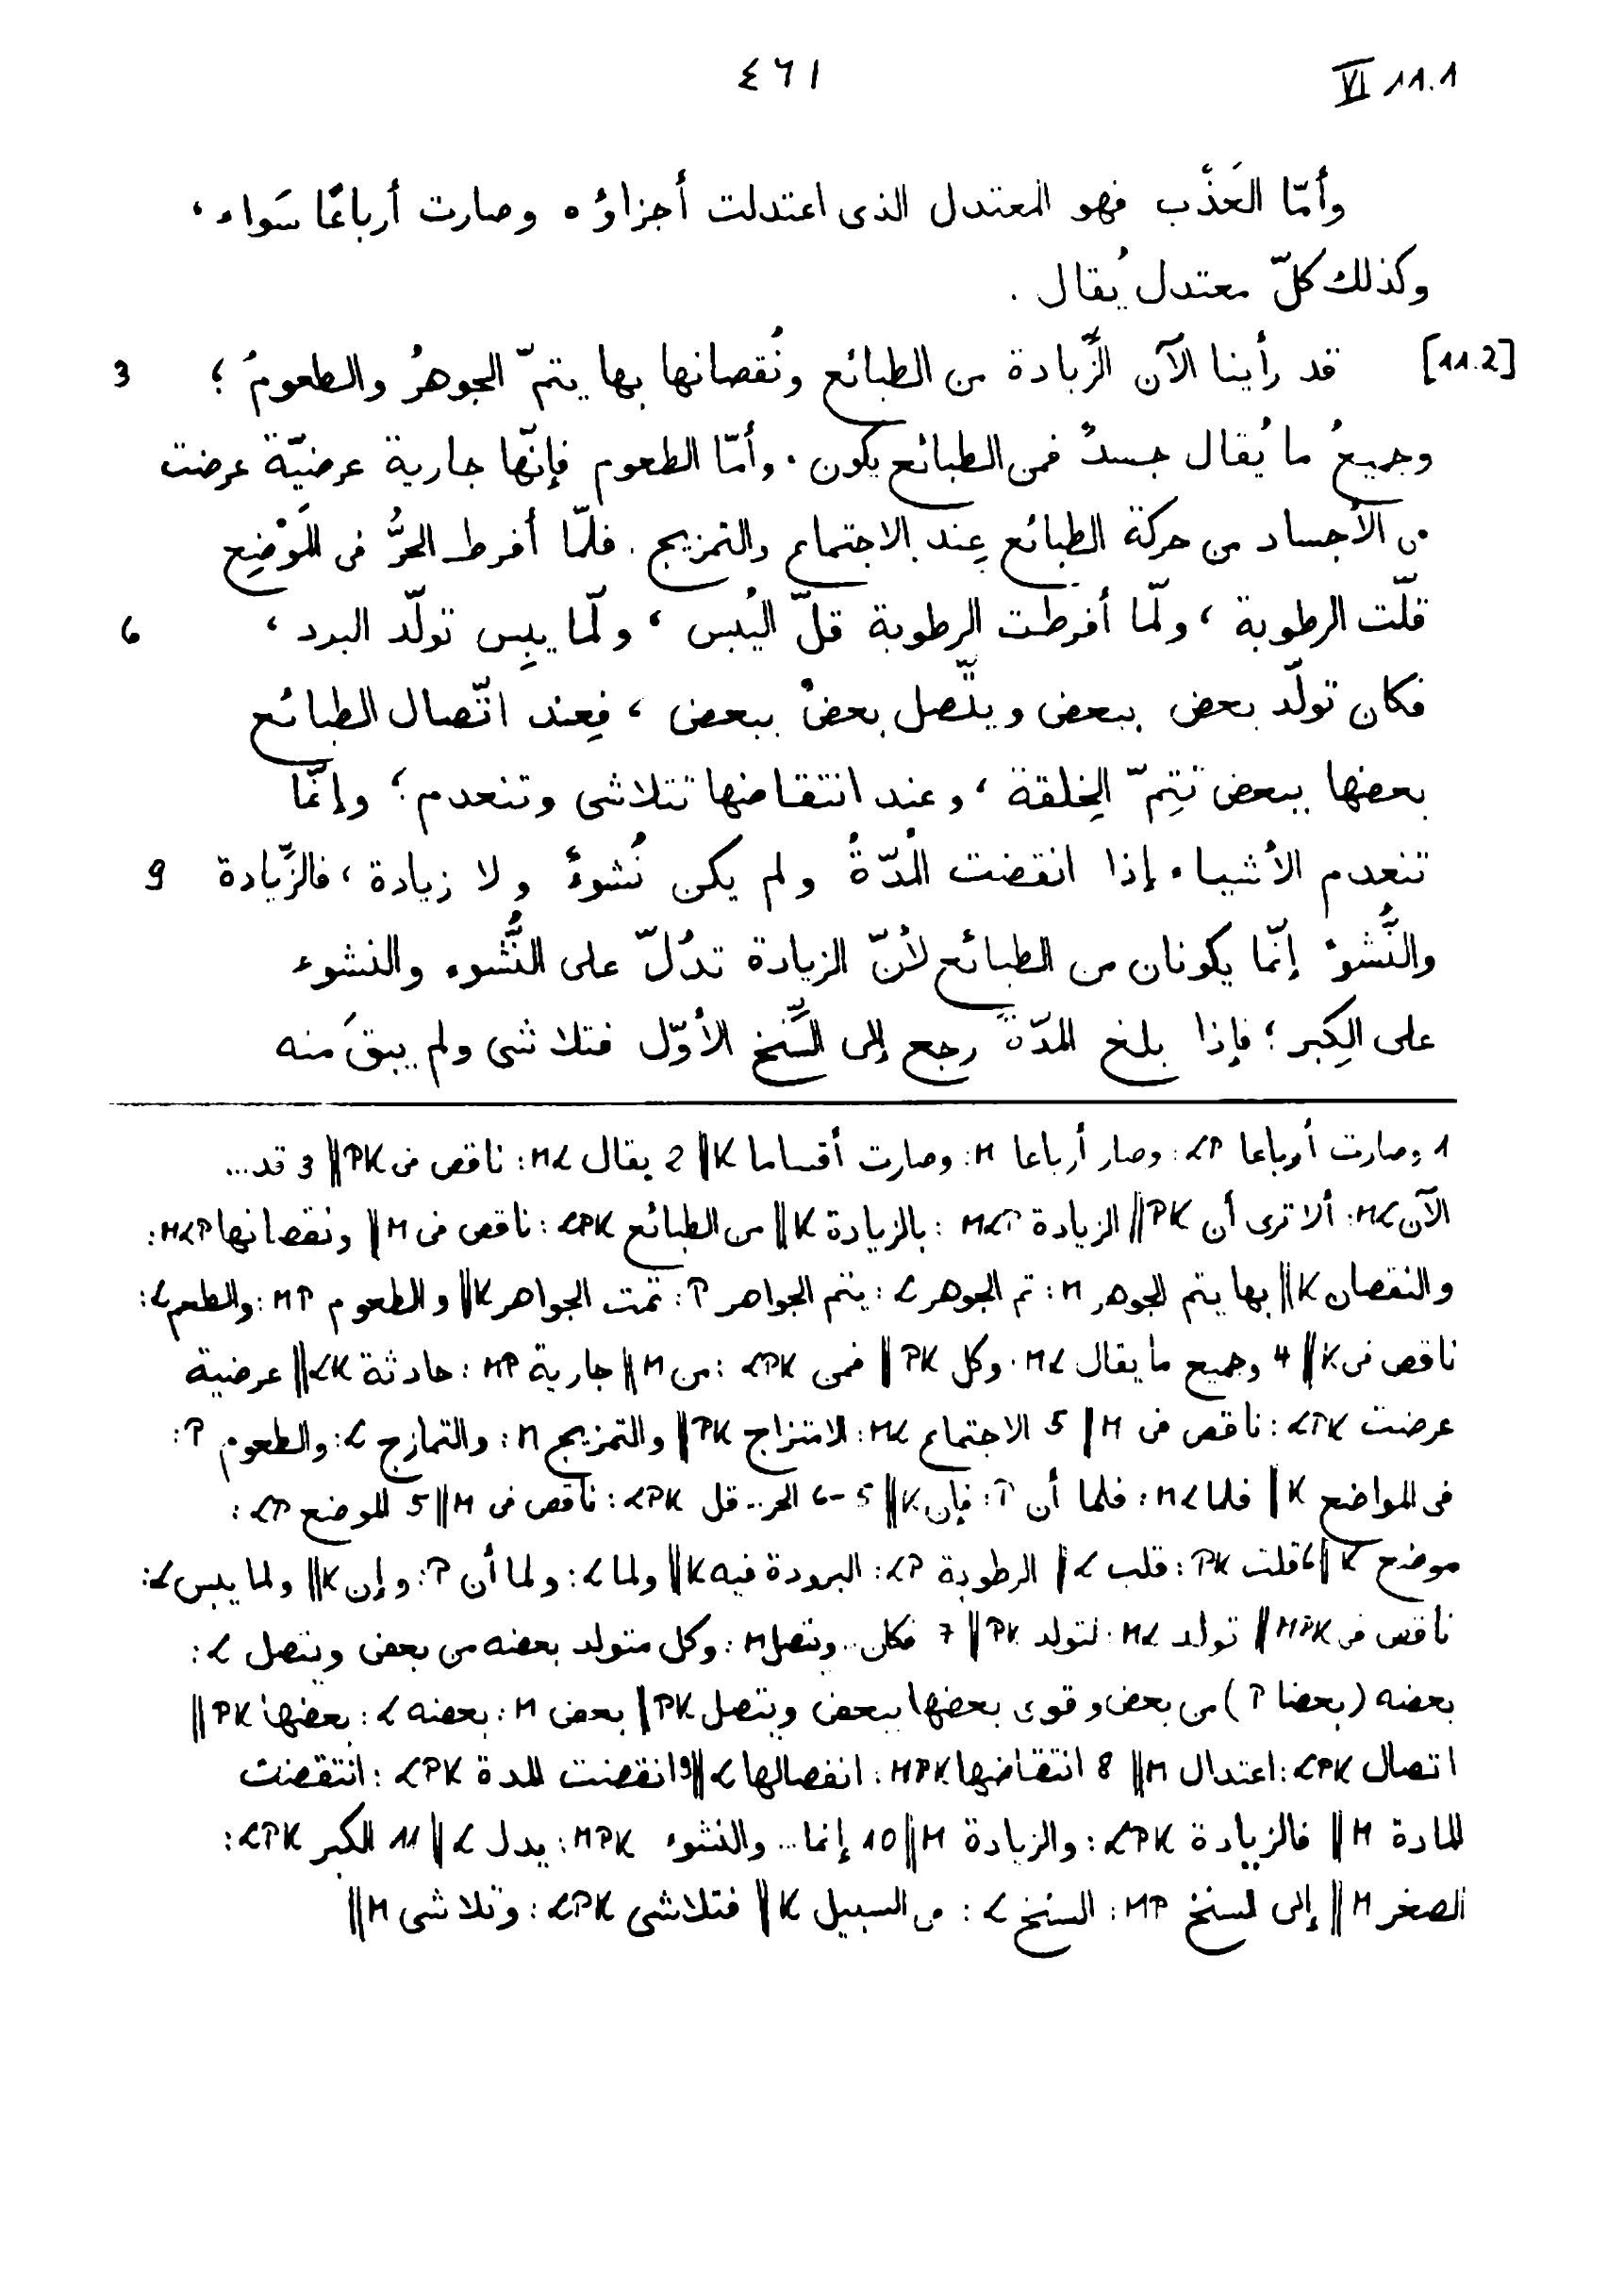 ٤٦١ VI 11.1
وأمّا العَذْب فهو المعتدل الذى اعتدلت أجزاؤه وصارت أرباعًا سَواء ،
وكذلك كلّ معتدل يُقال .
[11.2] قد رأينا الآن الزِّيادة من الطبائع ونُقصانها بها يتمّ الجوهرُ والطعومُ ؛ 3
وجميعُ ما يُقال جسدٌ فمن الطبائع يكون . وأمّا الطعوم فإنّها جارية عرضيّة عرضت
من الأجساد من حركة الطبائع عِند الاجتماع والتمزيج . فلمّا أفرط الحرُّ فى المَوْضِع
قلّت الرطوبة ، ولمّا أفرطت الرطوبة قلّ اليُبس ، ولمّا يبِس تولّد البرد ، 6
فكان تولّد بعض ببعض ويتّصل بعضٌ ببعض ، فعِند اتّصال الطبائع
بعضها ببعض تتِمّ الخِلقة ، وعند انتقاضها تتلاشى وتنعدم ؛ وإنّما
تنعدم الأشياء إذا انقضت المُدّةُ ولم يكن نُشوءٌ ولا زيادة ، فالزِّيادة 9
والنُّشوءُ إنّما يكونان من الطبائع لأنّ الزيادة تدُلّ على النُّشوء والنشوء
على الكِبر ؛ فإذا بلغ المدّةَ رجع إلى السِّنخ الأوّل فتلاشى ولم يبقَ منه
1 وصارت أرباعا LP : وصار أرباعا M : وصارت أقساما K || 2 يقال ML : ناقص فى PK || 3 قد ...
الآن ML : ألا ترى أن PK || الزيادة MLP : بالزيادة K || من الطبائع LPK : ناقص فى M || ونقصانها MLP :
والنقصان K || بها يتم الجوهر M : تم الجوهر L : يتم الجواهر P : تمت الجواهر K || والطعوم MP : والطعم L :
ناقص فى K || 4 وجميع ما يقال ML : وكل PK || فمن LPK : من M || جارية MP : حادثة LK || عرضية
عرضت LPK : ناقص فى M || 5 الاجتماع ML : الامتزاج PK || والتمزيج M : والتمازج L : والطعوم P :
فى المواضع K || فلما ML : فلما أن P : فإن K || 5-6 الحر .. قل LPK : ناقص فى M || 5 الموضع LP :
موضع K || 6 قلت PK : قلب L || الرطوبة LP : البرودة فيه K || ولما L : ولما أن P : وإن K || ولما يبس L :
ناقص فى MPK || تولد ML : لتولد PK || 7 فكان .. ويتصل M : وكل متولد بعضه من بعض ويتصل L :
بعضه (بعضا P) من بعض وقوى بعضها ببعض ويتصل PK || بعض M : بعضه L : بعضها PK ||
اتصال LPK : اعتدال M || 8 انتقاضها MPK : انفصالها L || 9 انقضت المدة LPK : انتقضت
المادة M || فالزيادة LPK : والزيادة M || 10 إنما ... والنشوء MPK : يدل L || 11 الكبر LPK :
الصغر M || إلى لسنخ MP : السنخ L : من السبيل K || فتلاشى LPK : وتلاشى M ||